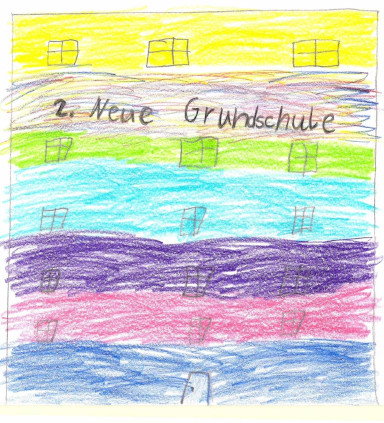 2. Neue Grundschule